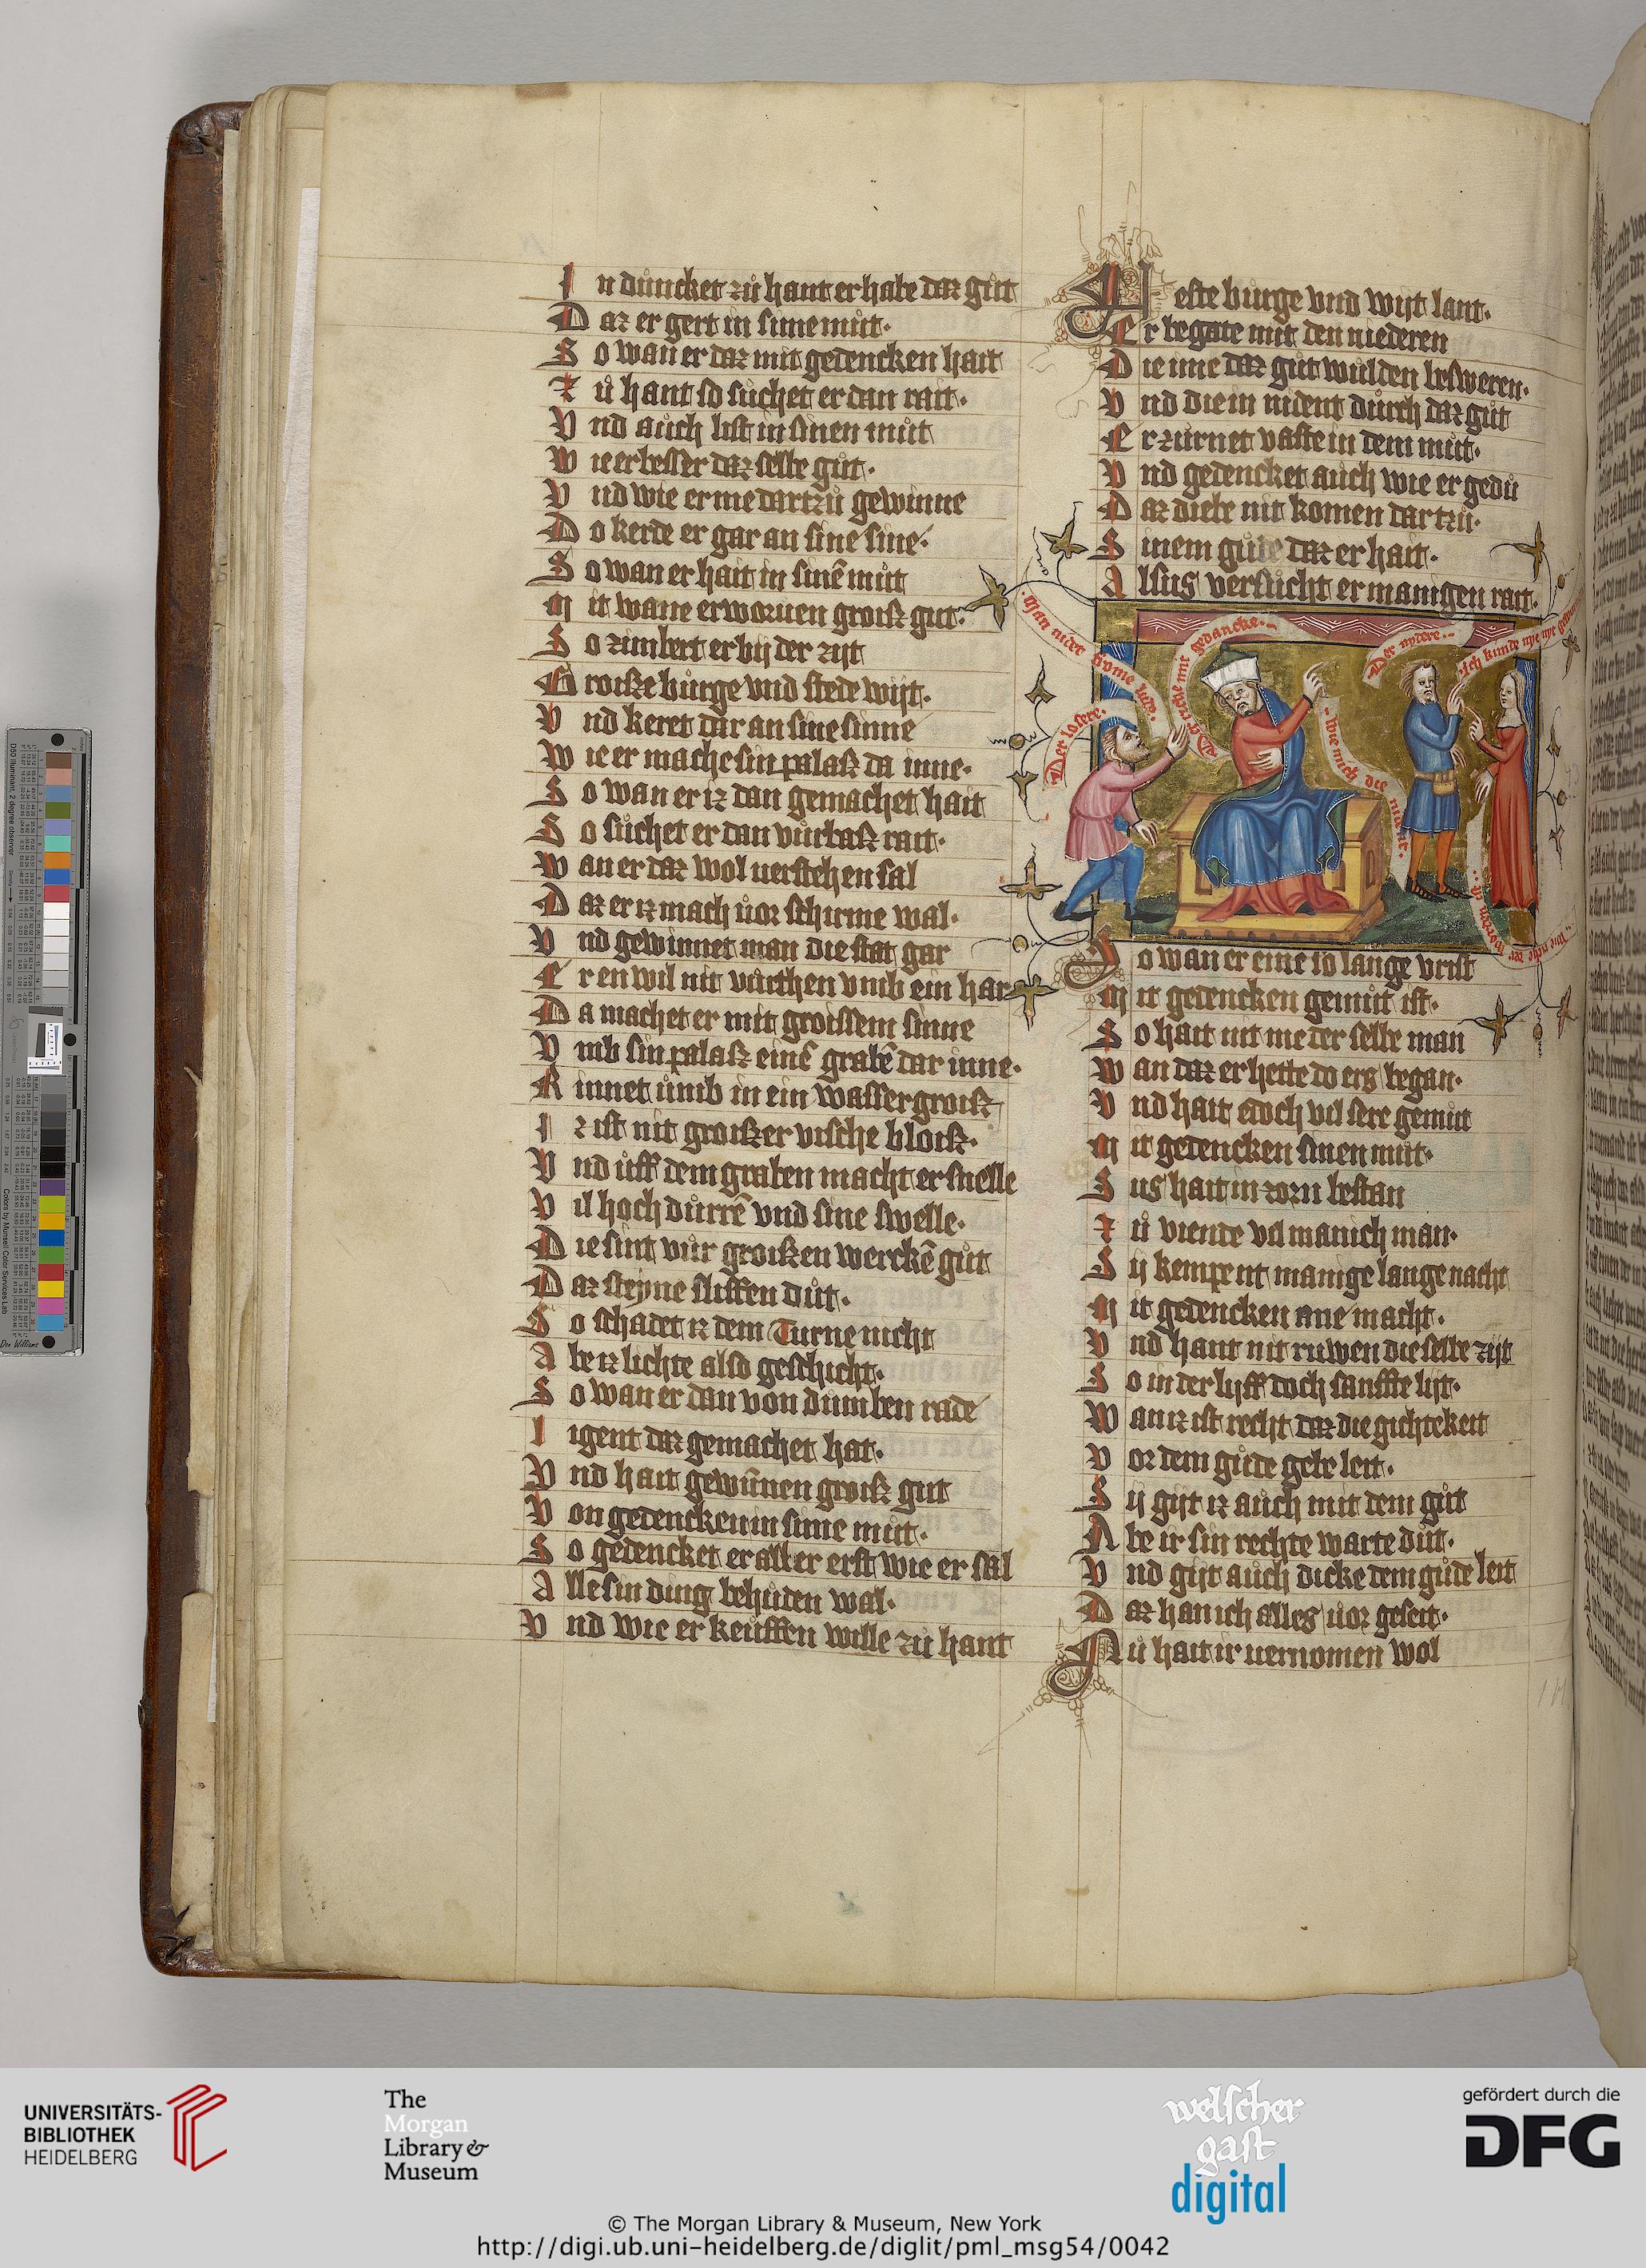 In důncket zů hant er habe daz gůt
Daz er gert in sime můt.
So wan er daz mit gedencken hait
Zů hant so sůchet er dan rait.
Vnd aůch list in sinen můt
Wie er besser daz selbe gůt.
Vnd wie er me dartzů gewinne
Do kerde er gar an sine sine.
So wan er hait in sinē můt
Mit wane erworuen groiß gut.
So zimbert er bij der zijt
Groiße bůrge vnd stede wijt.
Vnd keret dar an sine sinne
Wie er mache sin palaß da inne.
So wan er iz dan gemachet hait
So sůchet er dan vůrbaß rait.
Wan er daz wol uerstehen sal
Daz er iz mach ůor schirme wal.
Vnd gewinnet man die stat gar
Er en wil nit vůrthen vmb ein har
Da machet er mit groissem sinne
Vmb sin palaß einē grabē dar inne.
Rinnet ůmb in ein wasser groiß
Iz ist nit groißer vische bloiß.
Vnd ůff dem graben macht er snelle
Vil hoch důrrē vnd sine swelle.
Die sint vůr groißen werckē gůt
Daz steyne sliffen důt.
So schadet iz dem Turne nicht
Abe iz lichte also geschicht.
So wan er dan von dumben rade
Ligent daz gemachet hat.
Vnd hait gewūnen groiß gut
Von gedencken in sime můt.
So gedencket er aller erst wie er sal
Alle sin ding behůden wal.
Vnd wie er keůffen wille zů hant
Veste bůrge vnd wijt lant.
Er begate mit den niederen
Die ime daz gůt wůlden besweren.
Vnd die in nident důrch daz gůt
Er zůrnet vaste in dem můt.
Vnd gedencket aůch wie er gedů
Daz diebe nit komen dartzů.
Sinem gůde daz er hait.
Alsus versůcht er manigen rait.
Man nidet frome lude.
Der losere.
Der riche mit gedancke.
wie mich die nident.
Der nydere.
So wan er eine so lange vrist
Mit gedencken gemůt ist.
So hait nit me der selbe man
Wan daz er hette do ers began.
Vnd hait edoch vil sere gemůt
Mit gedencken sinen můt.
Sus hait in zorn bestan
Zů viende vil manich man.
Sij kempent manige lange nacht
Mit gedencken ane macht.
Vnd hant nit ruwen die selbe zijt
So in der lijff doch sanffte lijt.
Wan iz ist recht daz die gichtekeit
Vor dem gůde gebe leit.
Sij gijt iz aůch mit dem gůt
Abe ir sin rechte warte důt.
Vnd gijt aůch dicke dem gůde leit
Daz han ich alles ůor geseit.
Nů hait ir uernomen wol
UNIVERSITÄTS-
BIBLIOTHEK
HEIDELBERG
The
Morgan
Library &
Museum
welscher
gast
digital
gefördert durch die
DFG
© The Morgan Library & Museum, New York
http://digi.ub.uni-heidelberg.de/diglit/pml_msg54/0042